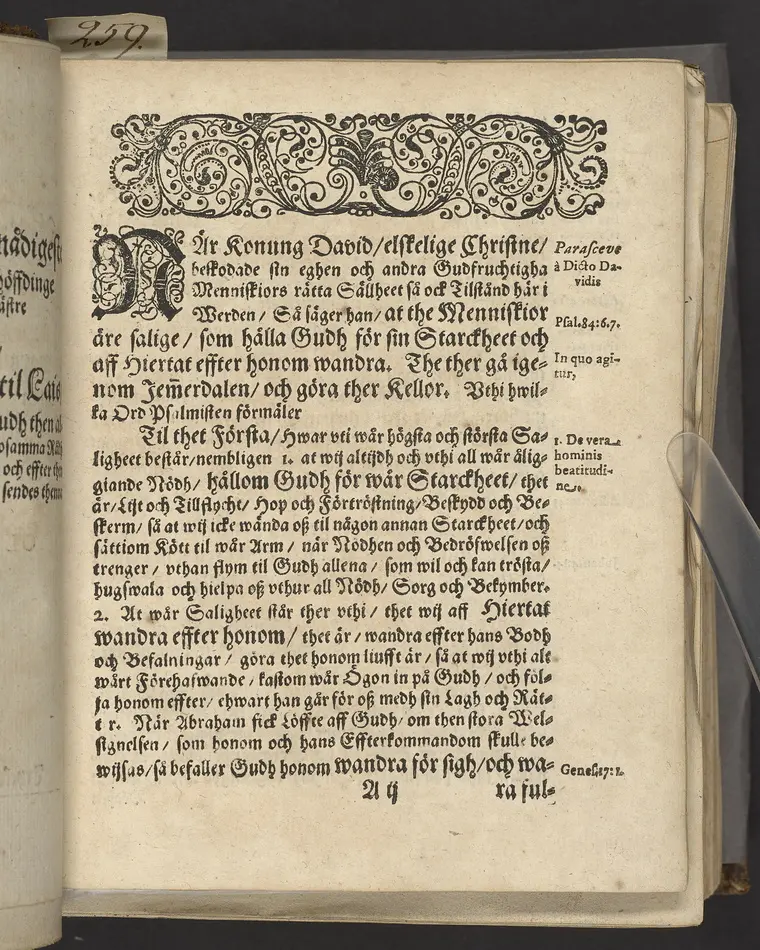 259.
nådigest
höffdinge
ästre
til Lais
udh then
och effter
sendes
NÄr Konung David/elskelige Christne/
beskodade sin eghen och andra Gudfruchtigha
Menniskiors rätta Sällheet så ock Tilstånd här i
Werden/ Så säger han/ at the Menniskior
äre salige/ som hålla Gudh för sin Starckheet och
aff Hiertat effter honom wandra. The ther gå ige-
nom Jem̃erdalen/ och göra ther Kellor. Vthi hwil-
ka Ord Psalmisten förmäler
Til thet Första/ Hwar vti wår högsta och största Sa-
ligheet består/nembligen 1. at wij altijdh och vthi all wår ålig-
giande Nödh/ hållom Gudh för wår Starckheet/ thet
är/Lijt och Tillflycht/ Hop och Förtröstning/Beskydd och Be-
skerm/ så at wij icke wända oß til någon annan Starckheet/och
sättiom Kött til wår Arm/ när Nödhen och Bedröfwelsen oß
trenger/ vthan flym til Gudh allena/ som wil och kan trösta/
hugswala och hielpa oß vthur all Nödh/ Sorg och Bekymber.
2. At wår Saligheet står ther vthi/ thet wij aff Hiertat
wandra effter honom/ thet är/ wandra effter hans Bodh
och Befalningar/ göra thet honom liufft är/ så at wij vthi alt
wårt Förehafwande/ kastom wår Ögon in på Gudh/ och föl-
ja honom effter/ ehwart han går för oß medh sin Lagh och Rät-
t r. När Abraham fick Löffte aff Gudh/ om then stora Wel-
signelsen/ som honom och hans Effterkommandom skulle be-
wijsas/så befaller Gudh honom wandra för sigh/och wa-
A ij ra ful-
Parasceve
à Dicto Da-
vidis
Psal.84:6.7.
In quo agi-
tur,
1. De vera
hominis
beatitudi-
ne.
Genes.17:1.